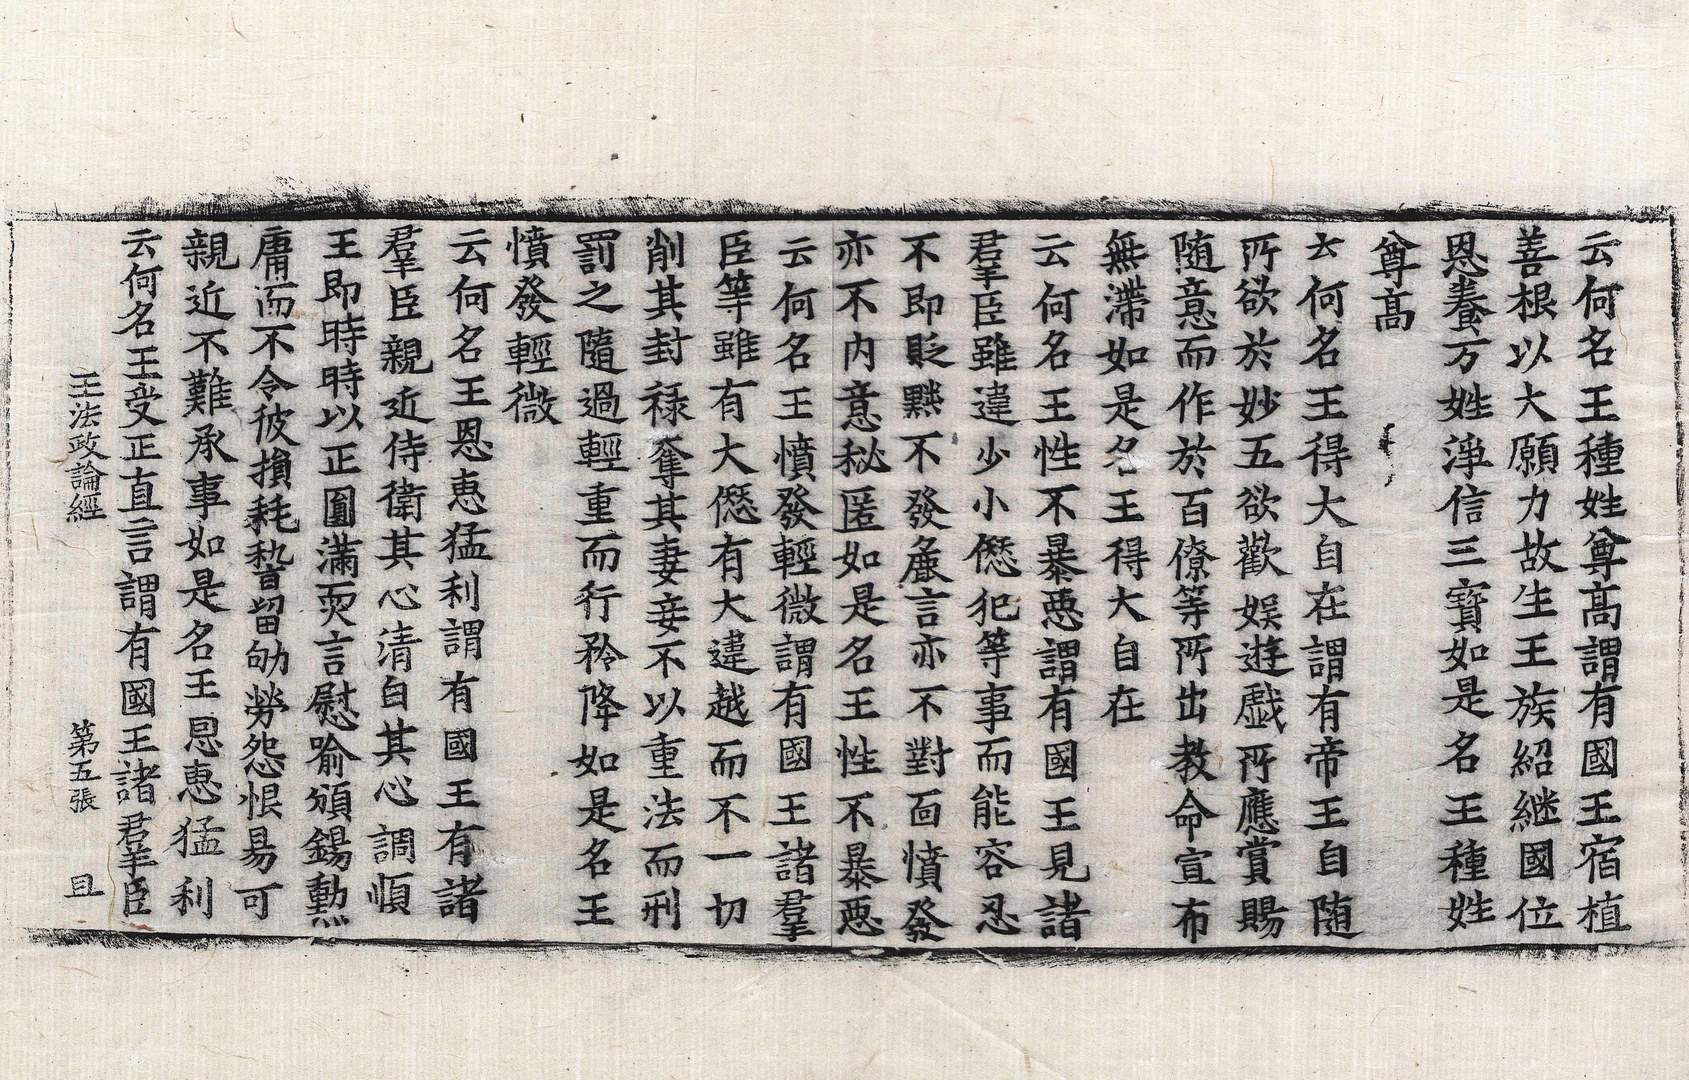 云何名王種姓尊高謂有國王宿植
善根以大願力故生王族紹継國位
恩養万姓淨信三寶如是名王種姓
尊高
云何名王得大自在謂有帝王自随
所欲於妙五欲歡娛遊戲所應賞賜
随意而作於百僚等所出教命宣布
無滯如是名王得大自在
云何名王性不暴惡謂有國王見諸
羣臣雖違少小𠎝犯等事而能容忍
不即貶黜不發麁言亦不對面憤發
亦不內意秘匿如是名王性不暴惡
云何名王憤發輕微謂有國王諸羣
臣等雖有大𠎝有大違越而不一切
削其封祿奪其妻妾不以重法而刑
罰之隨過輕重而行矜降如是名王
憤發輕微
云何名王恩惠猛利謂有國王有諸
羣臣親近侍衛其心清白其心調順
王即時時以正圓滿耎言慰喻頒錫勲
庸而不令彼損耗稽留劬勞怨恨易可
親近不難承事如是名王恩惠猛利
云何名王受正直言謂有國王諸羣臣
王法政論經 第五張